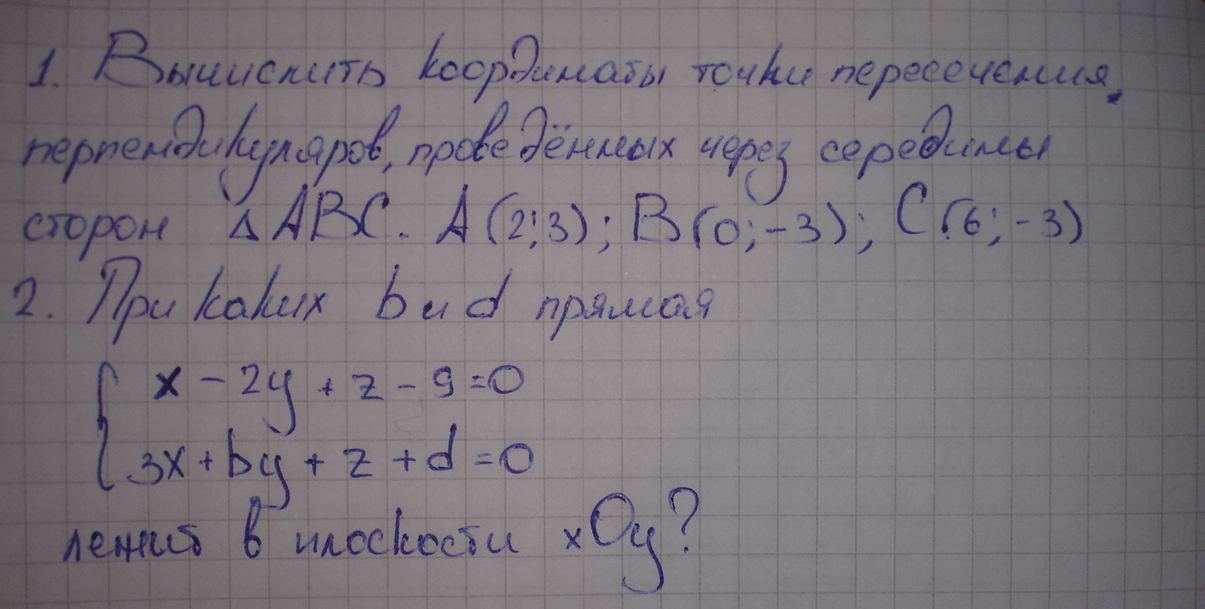 1. Вычислить координаты точки пересечения
перпендикуляров, проведённых через середины
сторон Δ ABC. A (2;3); B (0;-3); C (6;-3)
2. При каких b и d прямая
x - 2y + z - 9 = 0
3x + by + z + d = 0
лежит в плоскости xOy?